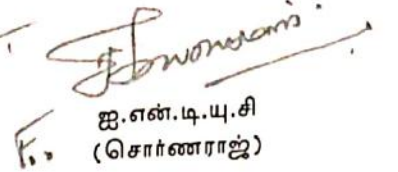 ஐ.என்.டி.யு.சி
F..
(சொர்ணராஜ்)